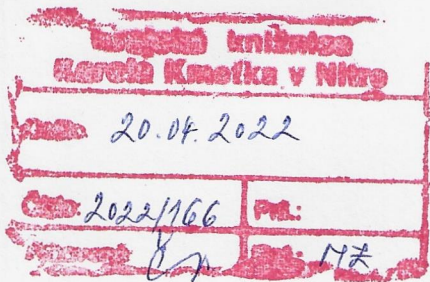 Krajská knižnica
Karola Kmeťka v Nitre
Došlo: 20.04.2022
Číslo: 2022/166 Príl.:
MŽ